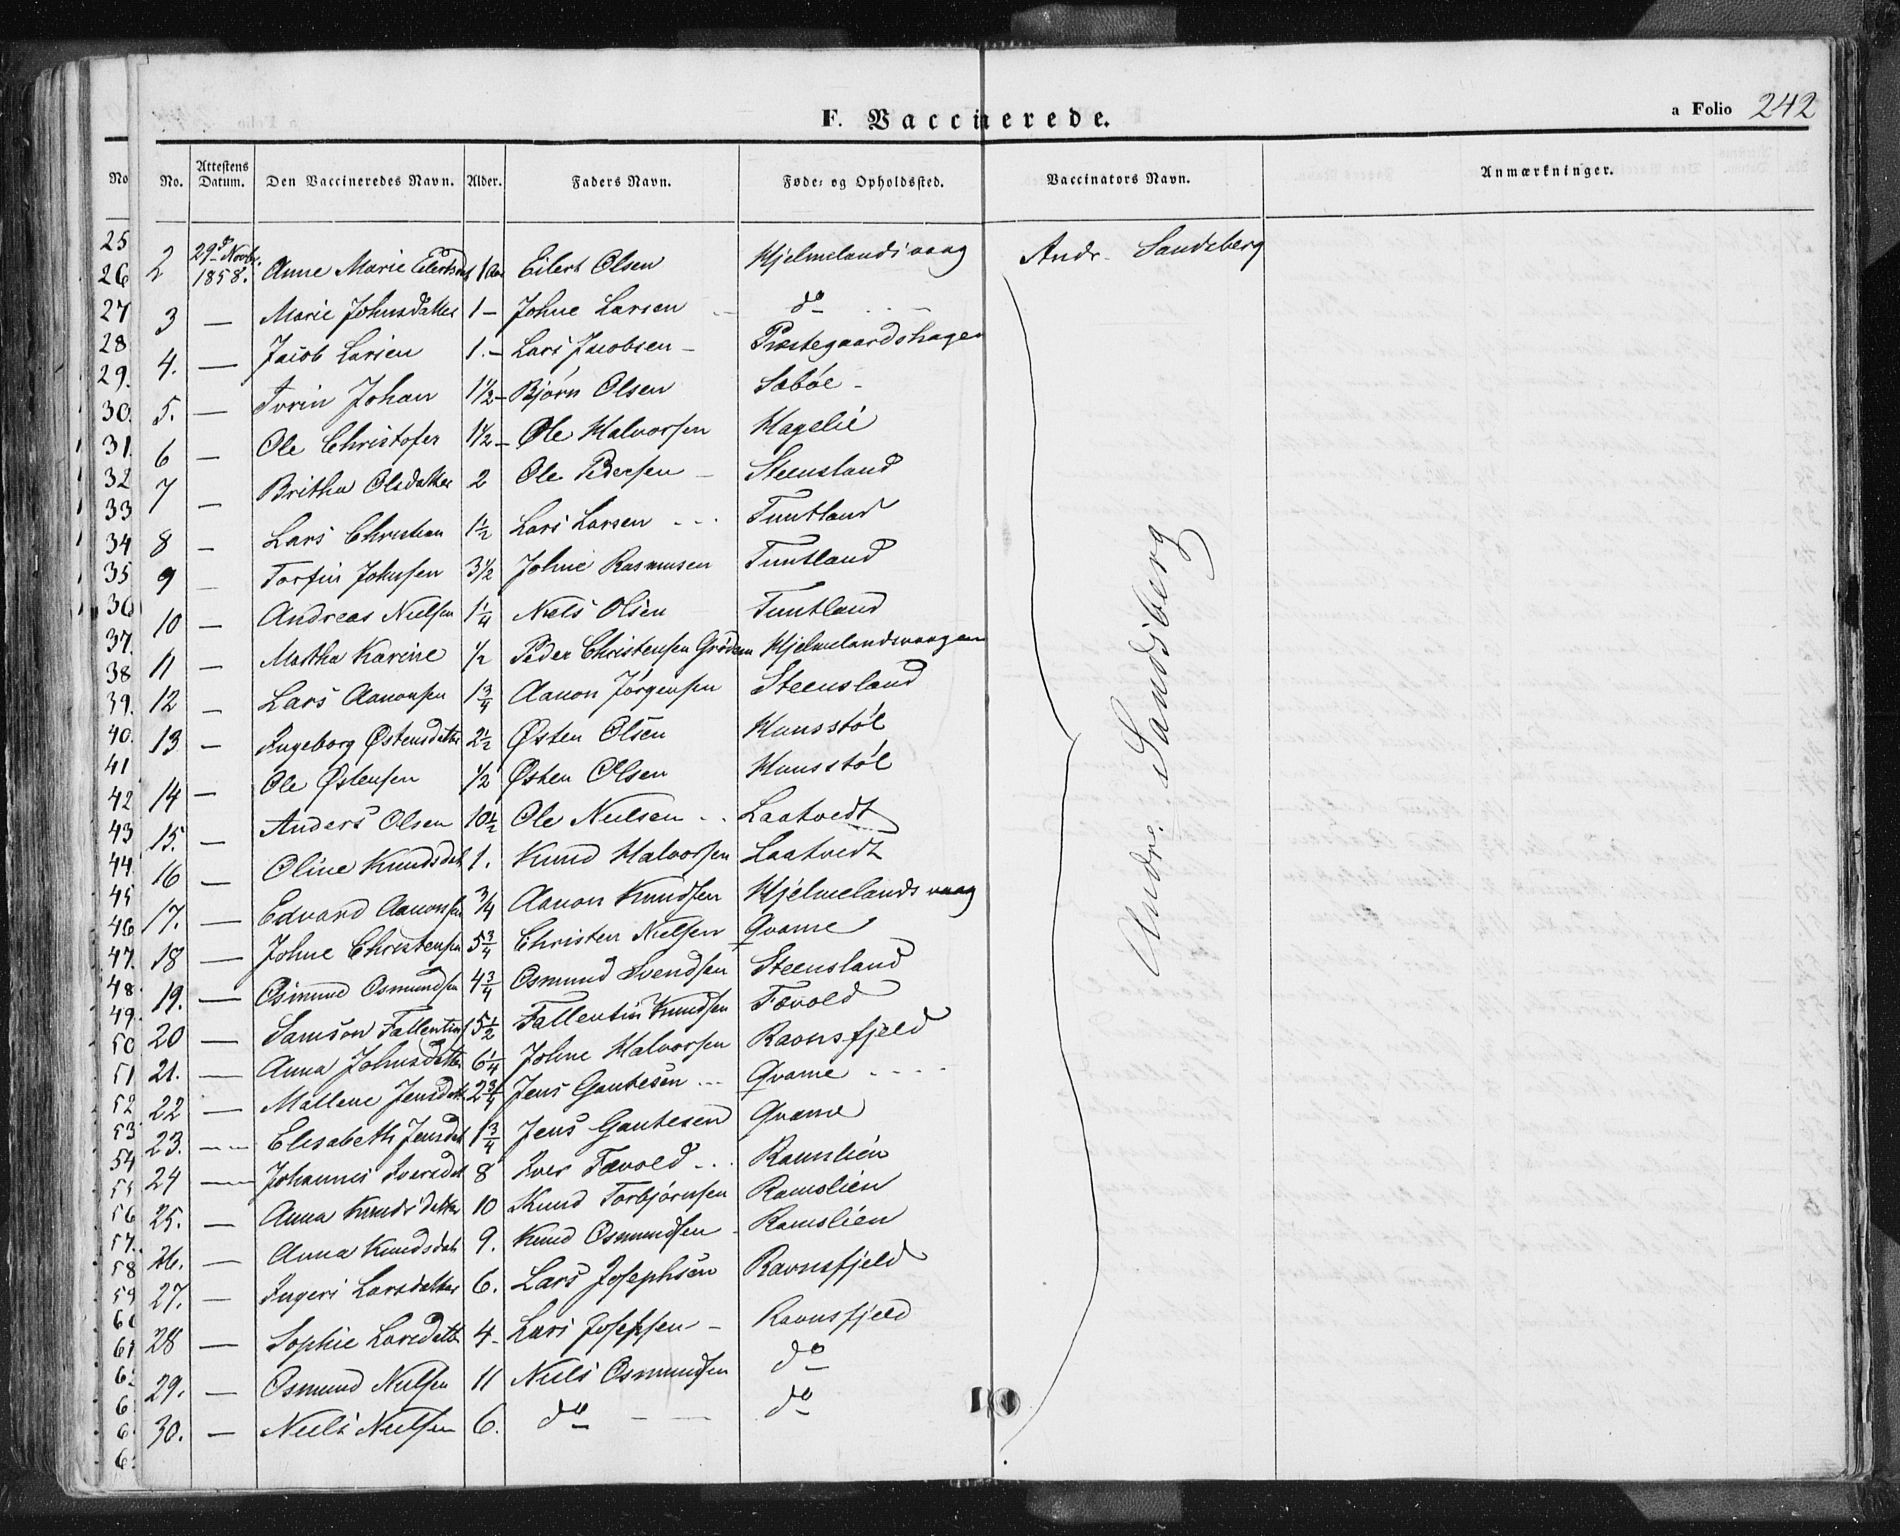 F. Vaccinerede.
a Folio 242
No. Attestens Datum. Den Vaccineredes Navn. Alder. Faders Navn. Føde- og Opholdssted. Vaccinators Navn. Anmærkninger.
2 29d Novbr. 1858. Anne Marie Eilertsd 1 Aar Eilert Olsen Hjelmelandsvaag Andr. Sandsberg
3 — Marie Johnsdatter 1 — Johne Larsen do
4. — Jacob Larsen 1. — Lars Jacobsen — Præstegaardshagen
5. — Johan 1½ — Bjørn Olsen Sæbøe —
6 — Ole Christofer 1½ — Ole Halvorsen Hagelie
7 — Britha Olsdatter 2 Ole Pedersen — Steensland
8 — Lars Christian 1½ Lars Larsen Tuntland
9 — Torfin Johnsen 3½ Johne Rasmusen Tuntland
10 — Andreas Nielsen 1¼ Niels Olsen Tuntland
11 — Martha Karine ½ Peder Christensen Grødem Hjelmelandsvaagen
12 — Lars Aanonsen 1¾ Aanon Jørgensen Steensland
13 — Ingeborg Østensdatter 2½ Østen Olsen Hunsstøl
14 — Ole Østensen ½ Østen Olsen Hunsstøl
15. — Anders Olsen 10½ Ole Nielsen Laatvedt
16 — Oline Knudsdat 1. Knud Halvorsen Laatvedt
17. — Edvard Aanonsen ¾ Aanon Knudsen Hjelmelandsvaag
18 — Johne Christensen 5¾ Christen Nielsen Qvame
19. — Osmund Osmundsen 4¾ Osmund Svendsen Steensland
20 — Samson Fallentins 5½ Fallentin Knudsen Fævold
21. — Anna Johnsdatter 6¼ Johne Halvorsen Ravnsfjeld
22 — Mallene Jensdat 2¾ Jens Gautesen Qvame
23. — Elisabeth Jensdat 1¾ Jens Gautesen Qvame
24 — Johannes 8 Iver Fævold Ramslien
25. — Anna Knudsdatter 10 Knud Torbjørnsen Ramslien
26. — Anna Knudsdat 9. Knud Osmundsen Ramslien
27. — Ingeri Larsdatter 6. Lars Josephsen Ravnsfjeld
28 — Sophie Larsdatt 4 — Lars Josepsen — Ravnsfjeld
29. — Osmund Nielsen 11 Niels Osmundsen do
30. — Niels Nielsen 6. do — — do
Andr. Sandsberg
No
25
26
27
28
29.
30.
31.
32
33
34
35
36
37.
38
39.
40.
41
42
43
44
45
46
47.
48
49.
50
51
52
53
54
55
56
57.
58
59
60
61